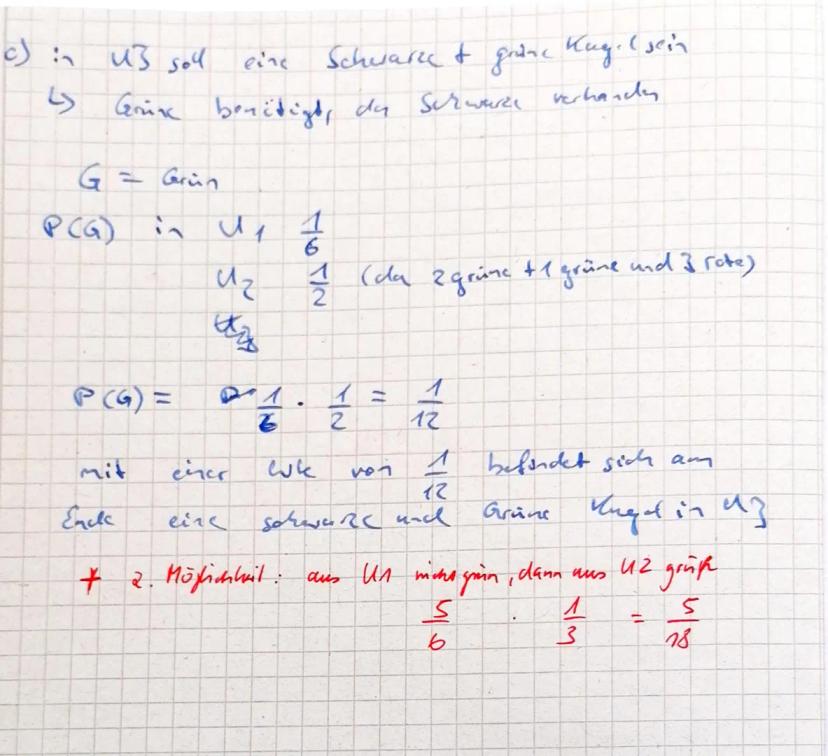 c) in U3 soll eine Schwarze + grüne Kugel sein
↳ Grüne benötigt, da Schwarze vorhanden
G = Grün
P(G) in U1 1/6
U2 1/2 (da 2 grüne + 1 grüne und 3 rote)
P(G) = 1/6 · 1/2 = 1/12
mit einer Wk von 1/12 befindet sich am
Ende eine schwarze und Grüne Kugel in U3
+ 2. Möglichkeit: aus U1 nicht grün, dann aus U2 grün
5/6 · 1/3 = 5/18